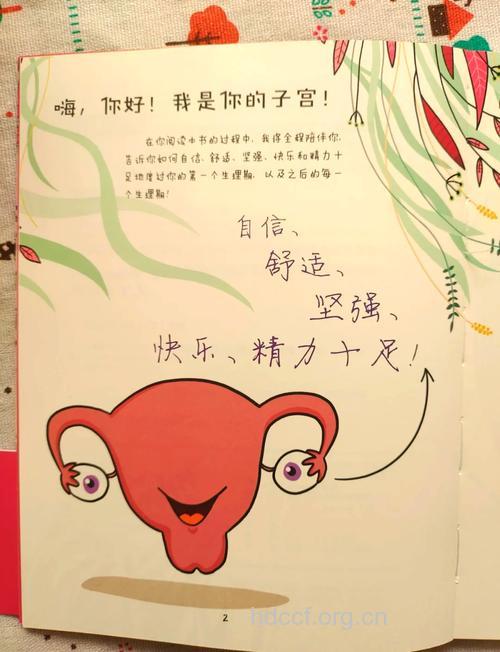 嗨，你好！我是你的子宫！
在你阅读本书的过程中，我将全程陪伴你，
告诉你如何自信、舒适、坚强、快乐和精力十
足地度过你的第一个生理期，以及之后的每一
个生理期！
自信、
舒适、
坚强、
快乐、精力十足！
2
hdccf.org.cn